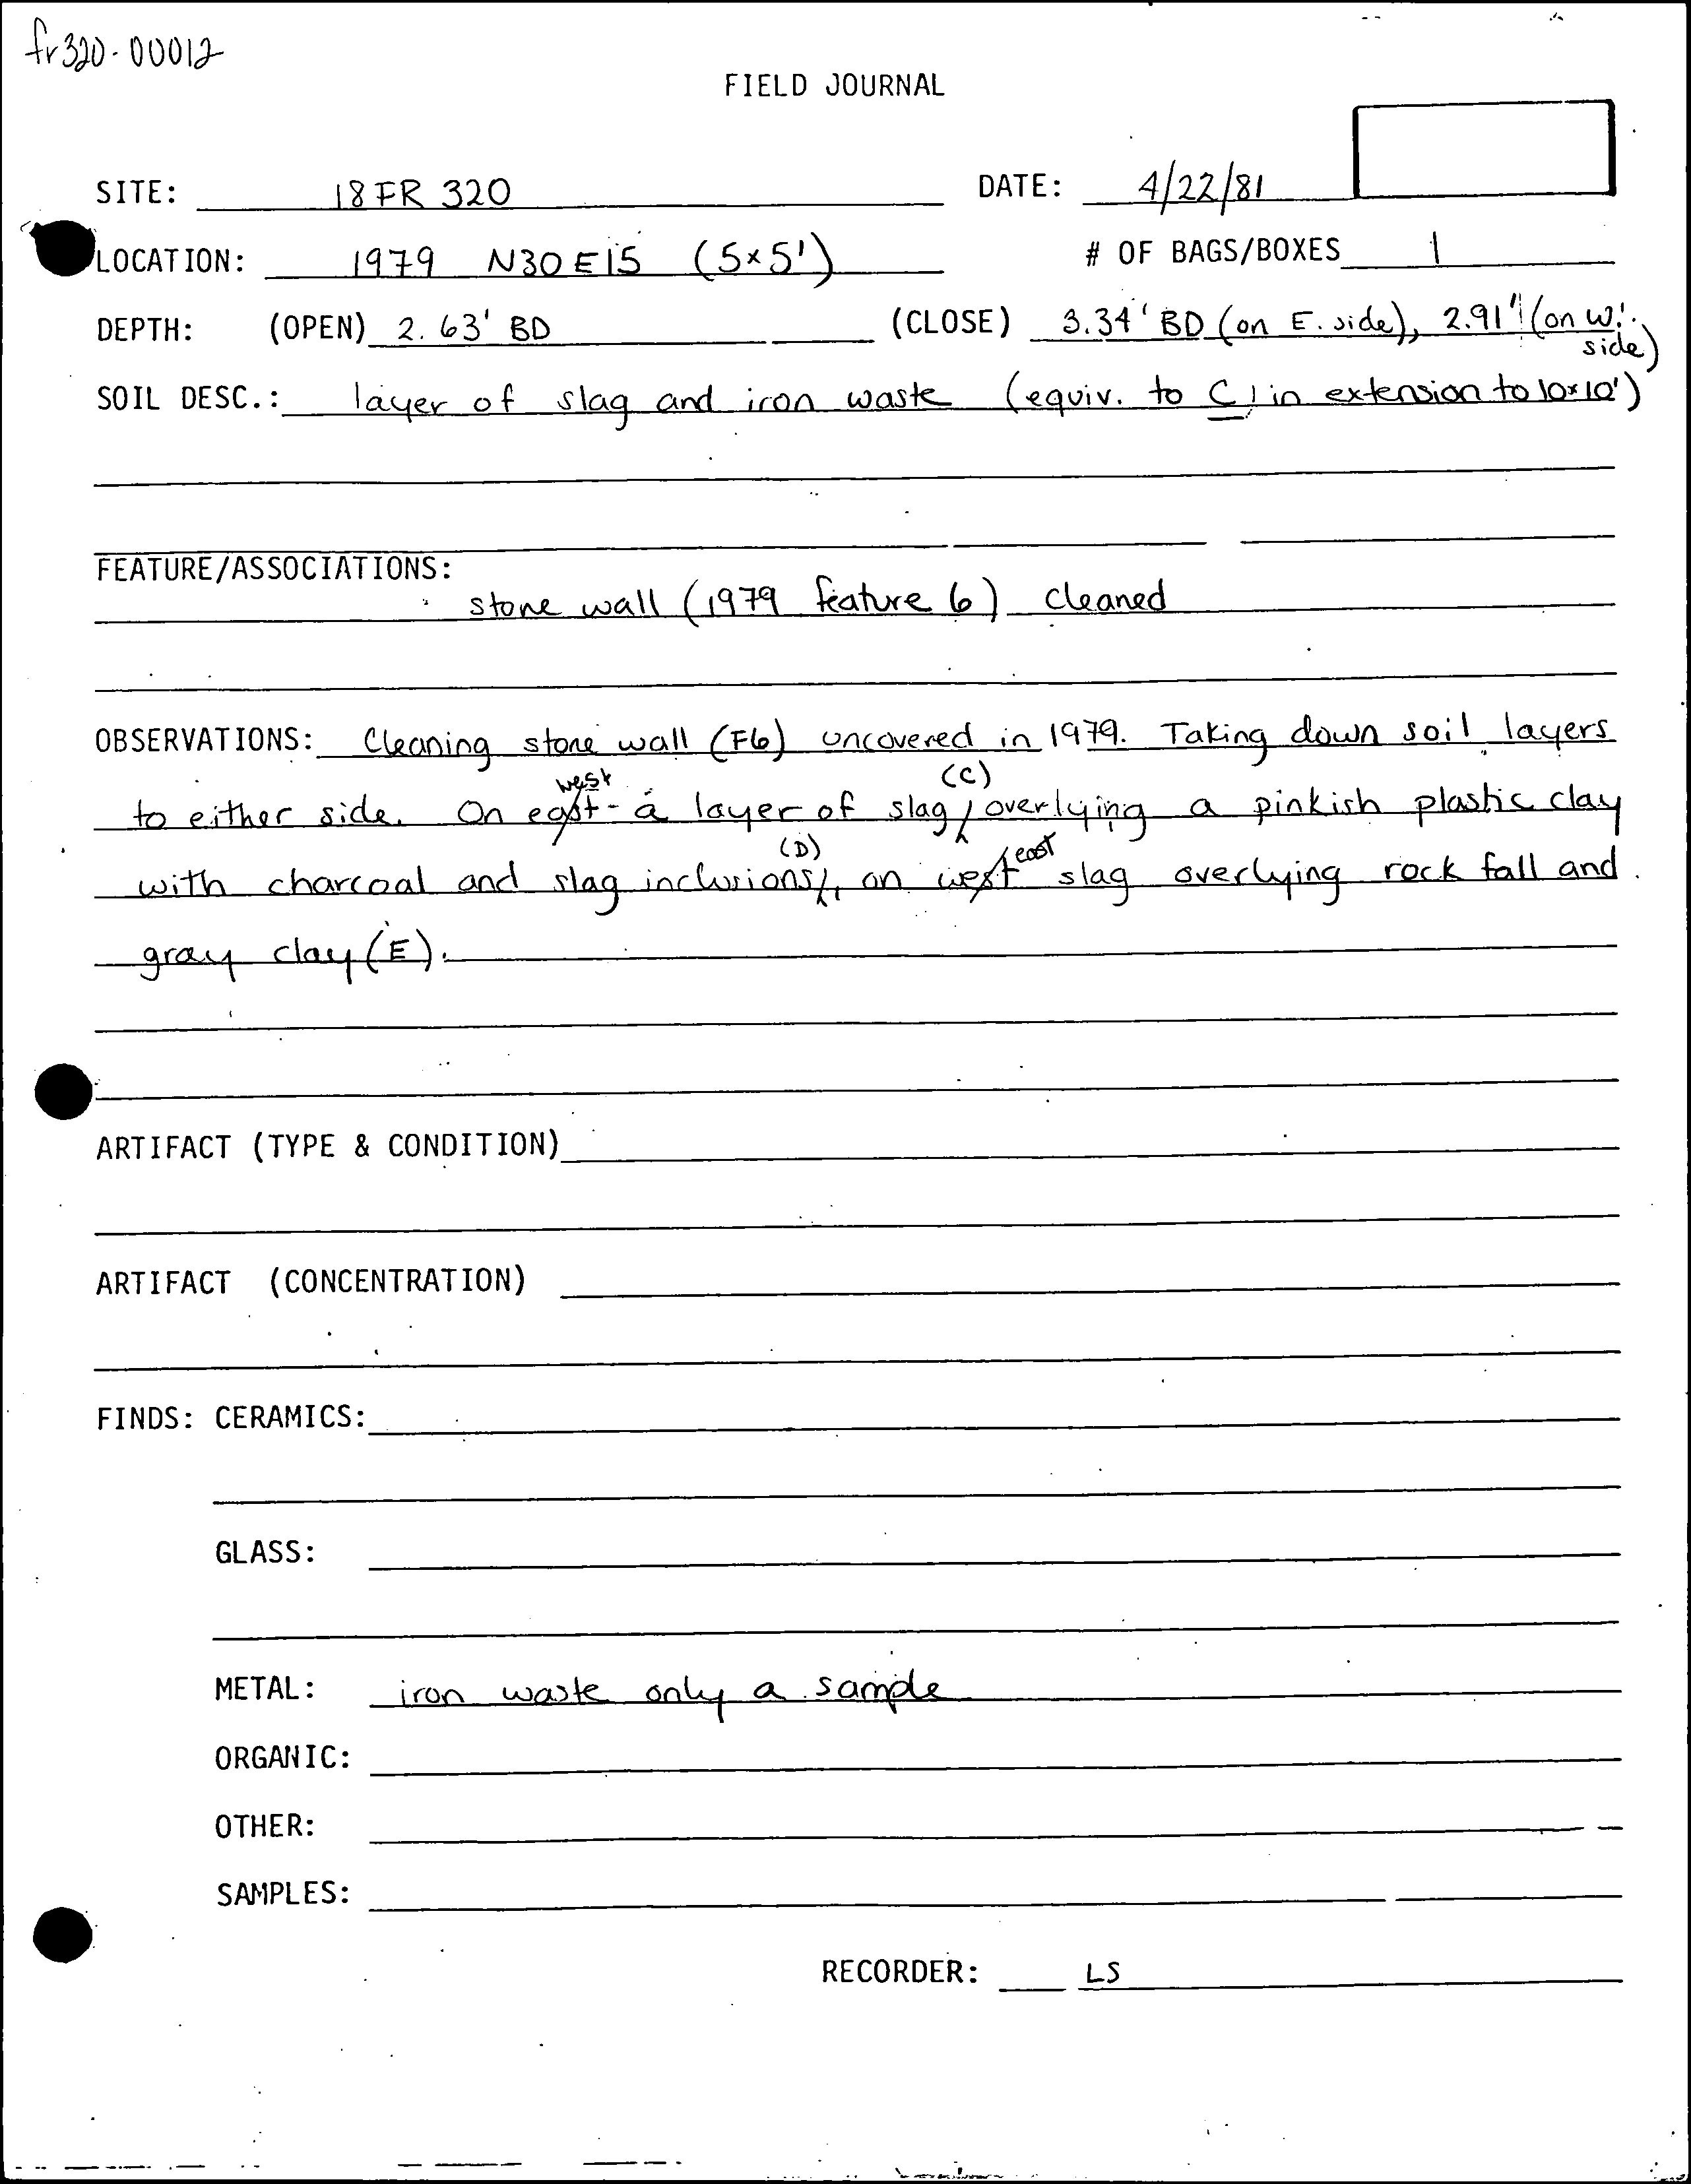 fr320-00012
FIELD JOURNAL
SITE: 18 FR 320 DATE: 4/22/81
LOCATION: 1979 N30 E15 (5x5') # OF BAGS/BOXES 1
DEPTH: (OPEN) 2.63' BD (CLOSE) 3.34' BD (on E. side), 2.91' (on W. side)
SOIL DESC.: layer of slag and iron waste (equiv. to C1 in extension to 10x10')
FEATURE/ASSOCIATIONS:
stone wall (1979 feature 6) cleaned
OBSERVATIONS: Cleaning stone wall (F6) uncovered in 1979. Taking down soil layers
to either side. On west - a layer of slag (C), overlying a pinkish plastic clay
with charcoal and slag inclusions (D), on east slag overlying rock fall and
gray clay (E).
ARTIFACT (TYPE & CONDITION)
ARTIFACT (CONCENTRATION)
FINDS: CERAMICS:
GLASS:
METAL: iron waste only a sample
ORGANIC:
OTHER:
SAMPLES:
RECORDER: LS